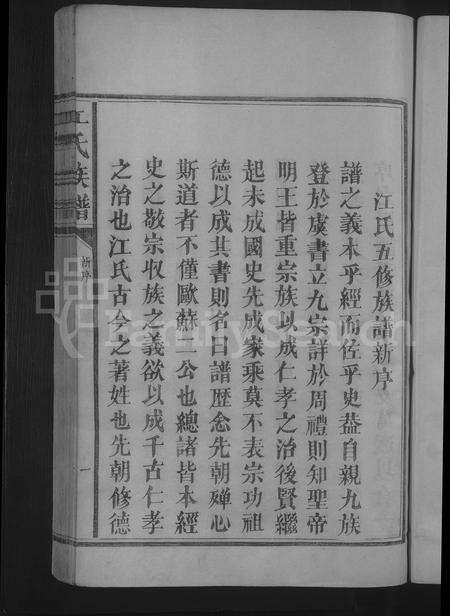 江氏五修族譜新序
譜之義本乎經而佐乎史葢自親九族
登於虞書立九宗詳於周禮則知聖帝
明王皆重宗族以成仁孝之治後賢繼
起未成國史先成家乘莫不表宗功祖
德以成其書則名曰譜歴念先朝殫心
斯道者不僅歐蘇二公也總諸皆本經
史之敬宗收族之義欲以成千古仁孝
之治也江氏古今之著姓也先朝修德
江氏族譜
新序
一